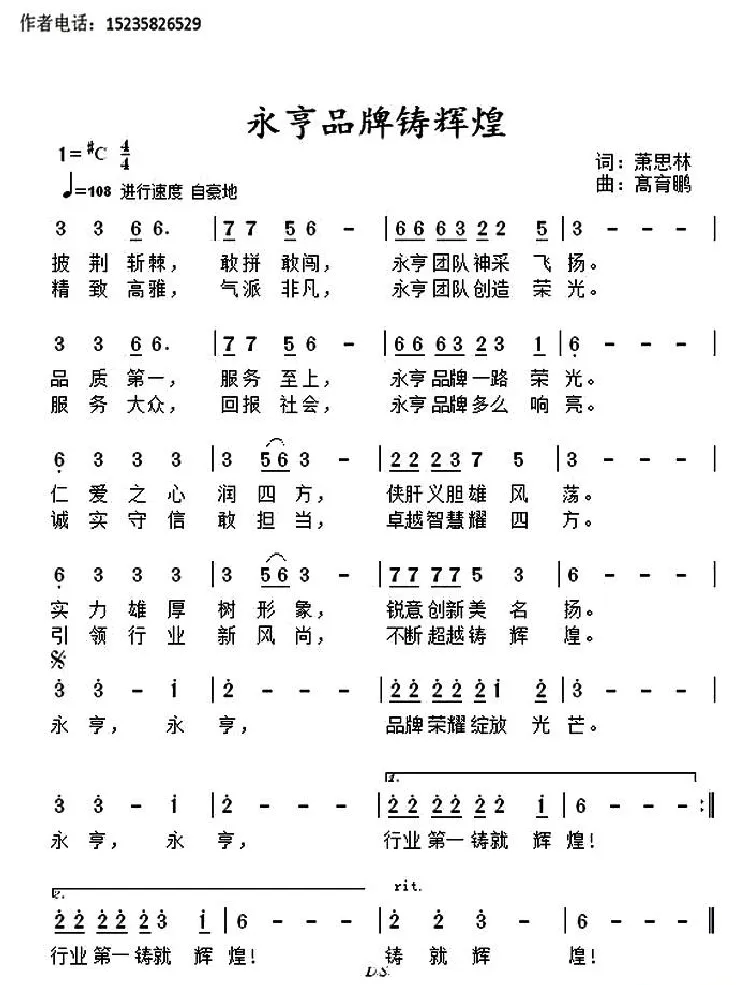 作者电话：15235826529
永亨品牌铸辉煌
1=#C 4/4
词：萧思林
♩=108 进行速度 自豪地
曲：高育鹏
3 3 6 6. | 7 7 5 6 - | 6 6 6 3 2 2 5 | 3 - - - |
披荆斩棘， 敢拼敢闯， 永亨团队神采飞扬。
精致高雅， 气派非凡， 永亨团队创造荣光。
3 3 6 6. | 7 7 5 6 - | 6 6 6 3 2 3 1 | 6̣ - - - |
品质第一， 服务至上， 永亨品牌一路荣光。
服务大众， 回报社会， 永亨品牌多么响亮。
6̣ 3 3 3 | 3 5 6 3 - | 2 2 2 3 7 5 | 3 - - - |
仁爱之心润四方， 侠肝义胆雄风荡。
诚实守信敢担当， 卓越智慧耀四方。
6̣ 3 3 3 | 3 5 6 3 - | 7 7 7 7 5 3 | 6 - - - |
实力雄厚树形象， 锐意创新美名扬。
引领行业新风尚， 不断超越铸辉煌。
3̇ 3̇ - 1̇ | 2̇ - - - | 2̇ 2̇ 2̇ 2̇ 2̇ 1̇ 2̇ | 3̇ - - - |
永亨， 永亨， 品牌荣耀绽放光芒。
1.
3̇ 3̇ - 1̇ | 2̇ - - - | 2̇ 2̇ 2̇ 2̇ 2̇ 2̇ 1̇ | 6 - - - :‖
永亨， 永亨， 行业第一铸就辉煌！
2. rit.
2̇ 2̇ 2̇ 2̇ 2̇ 3̇ 1̇ | 6 - - - | 2̇ 2̇ 3̇ - | 6 - - - ‖
行业第一铸就辉煌！ 铸就辉煌！
D.S.